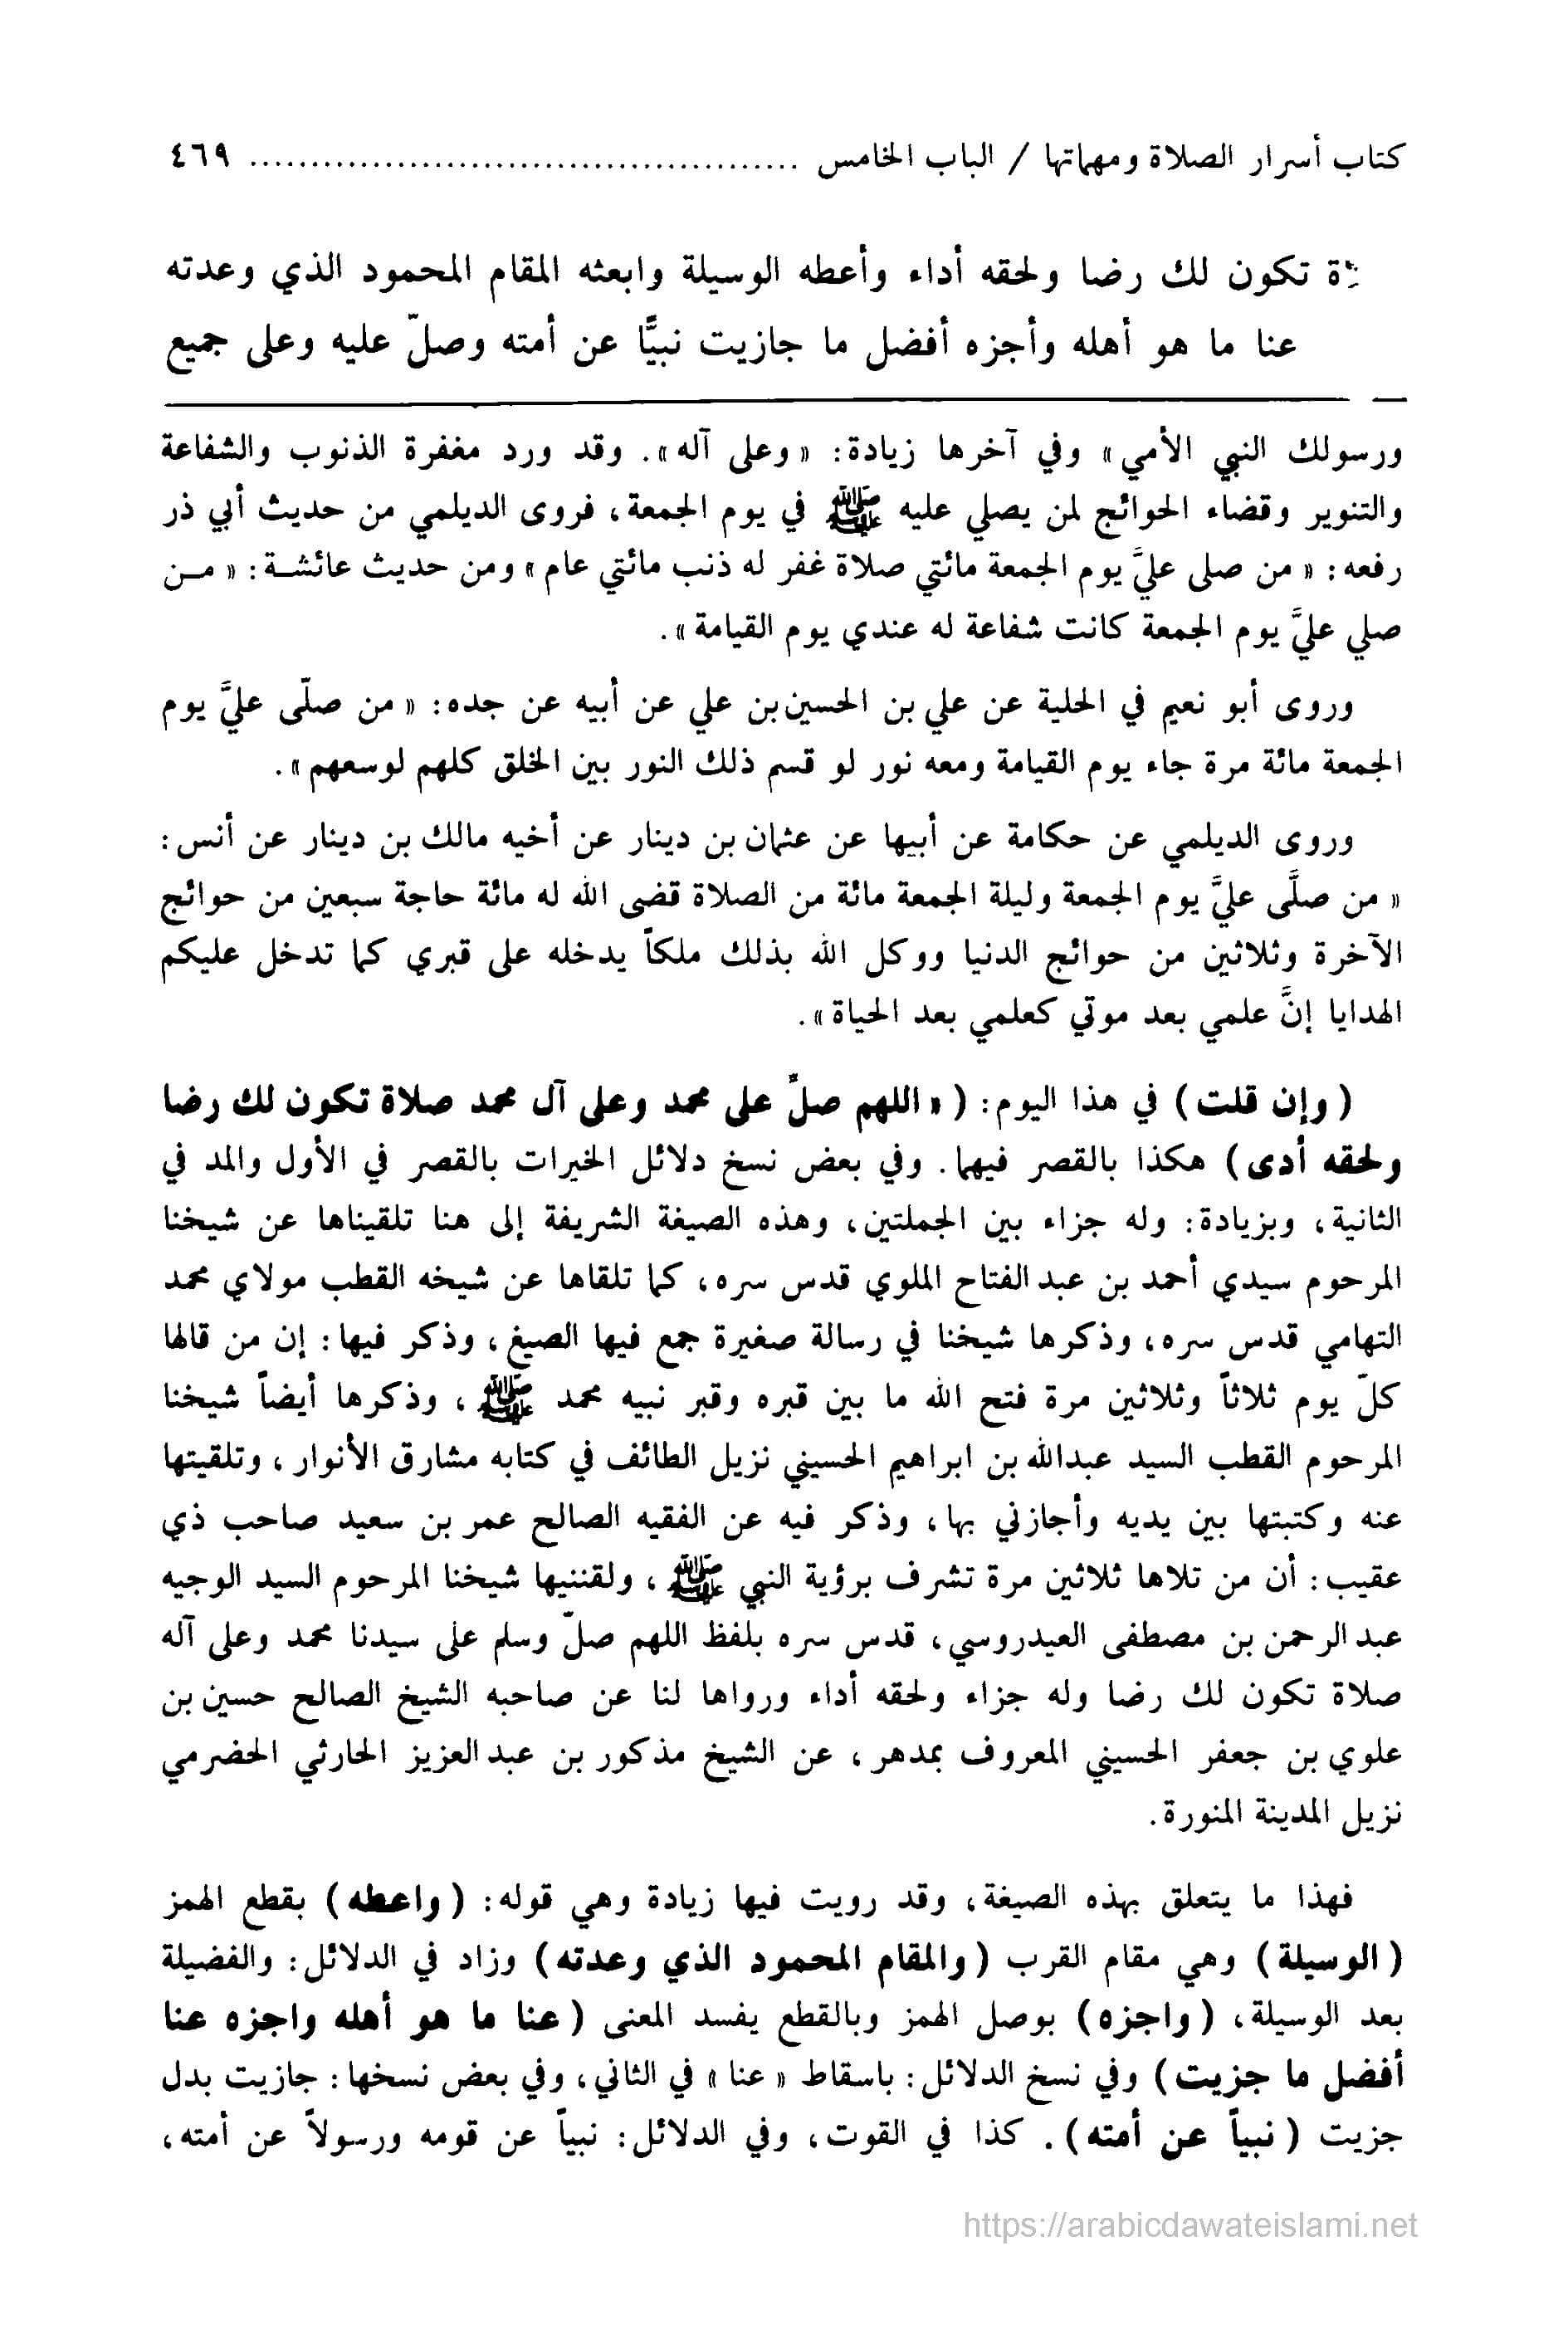 كتاب أسرار الصلاة ومهماتها / الباب الخامس ............................................. ٤٦٩
ة تكون لك رضا ولحقه أداء وأعطه الوسيلة وابعثه المقام المحمود الذي وعدته
عنا ما هو أهله وأجزه أفضل ما جازيت نبيًّا عن أمته وصلّ عليه وعلى جميع
ورسولك النبي الأمي» وفي آخرها زيادة: «وعلى آله». وقد ورد مغفرة الذنوب والشفاعة
والتنوير وقضاء الحوائج لمن يصلي عليه ﷺ في يوم الجمعة، فروى الديلمي من حديث أبي ذر
رفعه: «من صلى عليَّ يوم الجمعة مائتي صلاة غفر له ذنب مائتي عام» ومن حديث عائشة: «من
صلي عليَّ يوم الجمعة كانت شفاعة له عندي يوم القيامة».
وروى أبو نعيم في الحلية عن علي بن الحسين بن علي عن أبيه عن جده: «من صلّى عليَّ يوم
الجمعة مائة مرة جاء يوم القيامة ومعه نور لو قسم ذلك النور بين الخلق كلهم لوسعهم».
وروى الديلمي عن حكامة عن أبيها عن عثمان بن دينار عن أخيه مالك بن دينار عن أنس:
«من صلَّى عليَّ يوم الجمعة وليلة الجمعة مائة من الصلاة قضى الله له مائة حاجة سبعين من حوائج
الآخرة وثلاثين من حوائج الدنيا ووكل الله بذلك ملكاً يدخله على قبري كما تدخل عليكم
الهدايا إنَّ علمي بعد موتي كعلمي بعد الحياة».
(وإن قلت) في هذا اليوم: («اللهم صلِّ على محمد وعلى آل محمد صلاة تكون لك رضا
ولحقه أدى) هكذا بالقصر فيهما. وفي بعض نسخ دلائل الخيرات بالقصر في الأول والمد في
الثانية، وبزيادة: وله جزاء بين الجملتين، وهذه الصيغة الشريفة إلى هنا تلقيناها عن شيخنا
المرحوم سيدي أحمد بن عبد الفتاح الملوي قدس سره، كما تلقاها عن شيخه القطب مولاي محمد
التهامي قدس سره، وذكرها شيخنا في رسالة صغيرة جمع فيها الصيغ، وذكر فيها: إن من قالها
كلّ يوم ثلاثاً وثلاثين مرة فتح الله ما بين قبره وقبر نبيه محمد ﷺ، وذكرها أيضاً شيخنا
المرحوم القطب السيد عبدالله بن ابراهيم الحسيني نزيل الطائف في كتابه مشارق الأنوار، وتلقيتها
عنه وكتبتها بين يديه وأجازني بها، وذكر فيه عن الفقيه الصالح عمر بن سعيد صاحب ذي
عقيب: أن من تلاها ثلاثين مرة تشرف برؤية النبي ﷺ، ولقننيها شيخنا المرحوم السيد الوجيه
عبد الرحمن بن مصطفى العيدروسي، قدس سره بلفظ اللهم صلّ وسلم على سيدنا محمد وعلى آله
صلاة تكون لك رضا وله جزاء ولحقه أداء ورواها لنا عن صاحبه الشيخ الصالح حسين بن
علوي بن جعفر الحسيني المعروف بمدهر، عن الشيخ مذكور بن عبد العزيز الحارثي الحضرمي
نزيل المدينة المنورة.
فهذا ما يتعلق بهذه الصيغة، وقد رويت فيها زيادة وهي قوله: (واعطه) بقطع الهمز
(الوسيلة) وهي مقام القرب (والمقام المحمود الذي وعدته) وزاد في الدلائل: والفضيلة
بعد الوسيلة، (واجزه) بوصل الهمز وبالقطع يفسد المعنى (عنا ما هو أهله واجزه عنا
أفضل ما جزيت) وفي نسخ الدلائل: باسقاط «عنا» في الثاني، وفي بعض نسخها: جازيت بدل
جزيت (نبياً عن أمته). كذا في القوت، وفي الدلائل: نبياً عن قومه ورسولاً عن أمته،
https://arabicdawateislami.net